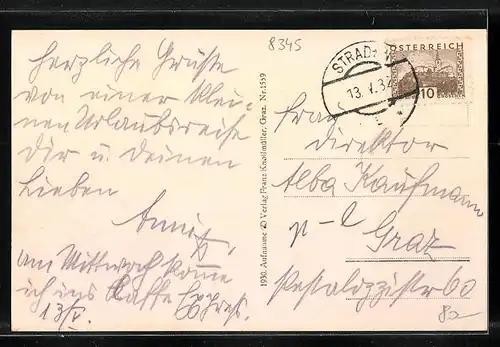 8345
Herzliche Grüsse
von einer klei-
nen Urlaubsreise
Dir u. Deinen
Lieben
am Mittwoch komme
ich ins Kaffe
13/V.
1930. Aufnahme u. Verlag Franz Knollmüller, Graz. Nr. 1559
STRAD
13. V. 3
ÖSTERREICH
10 GROSCHEN
Frau
Direktor
Alba Kaufmann
Graz
Pestalozzistr 60